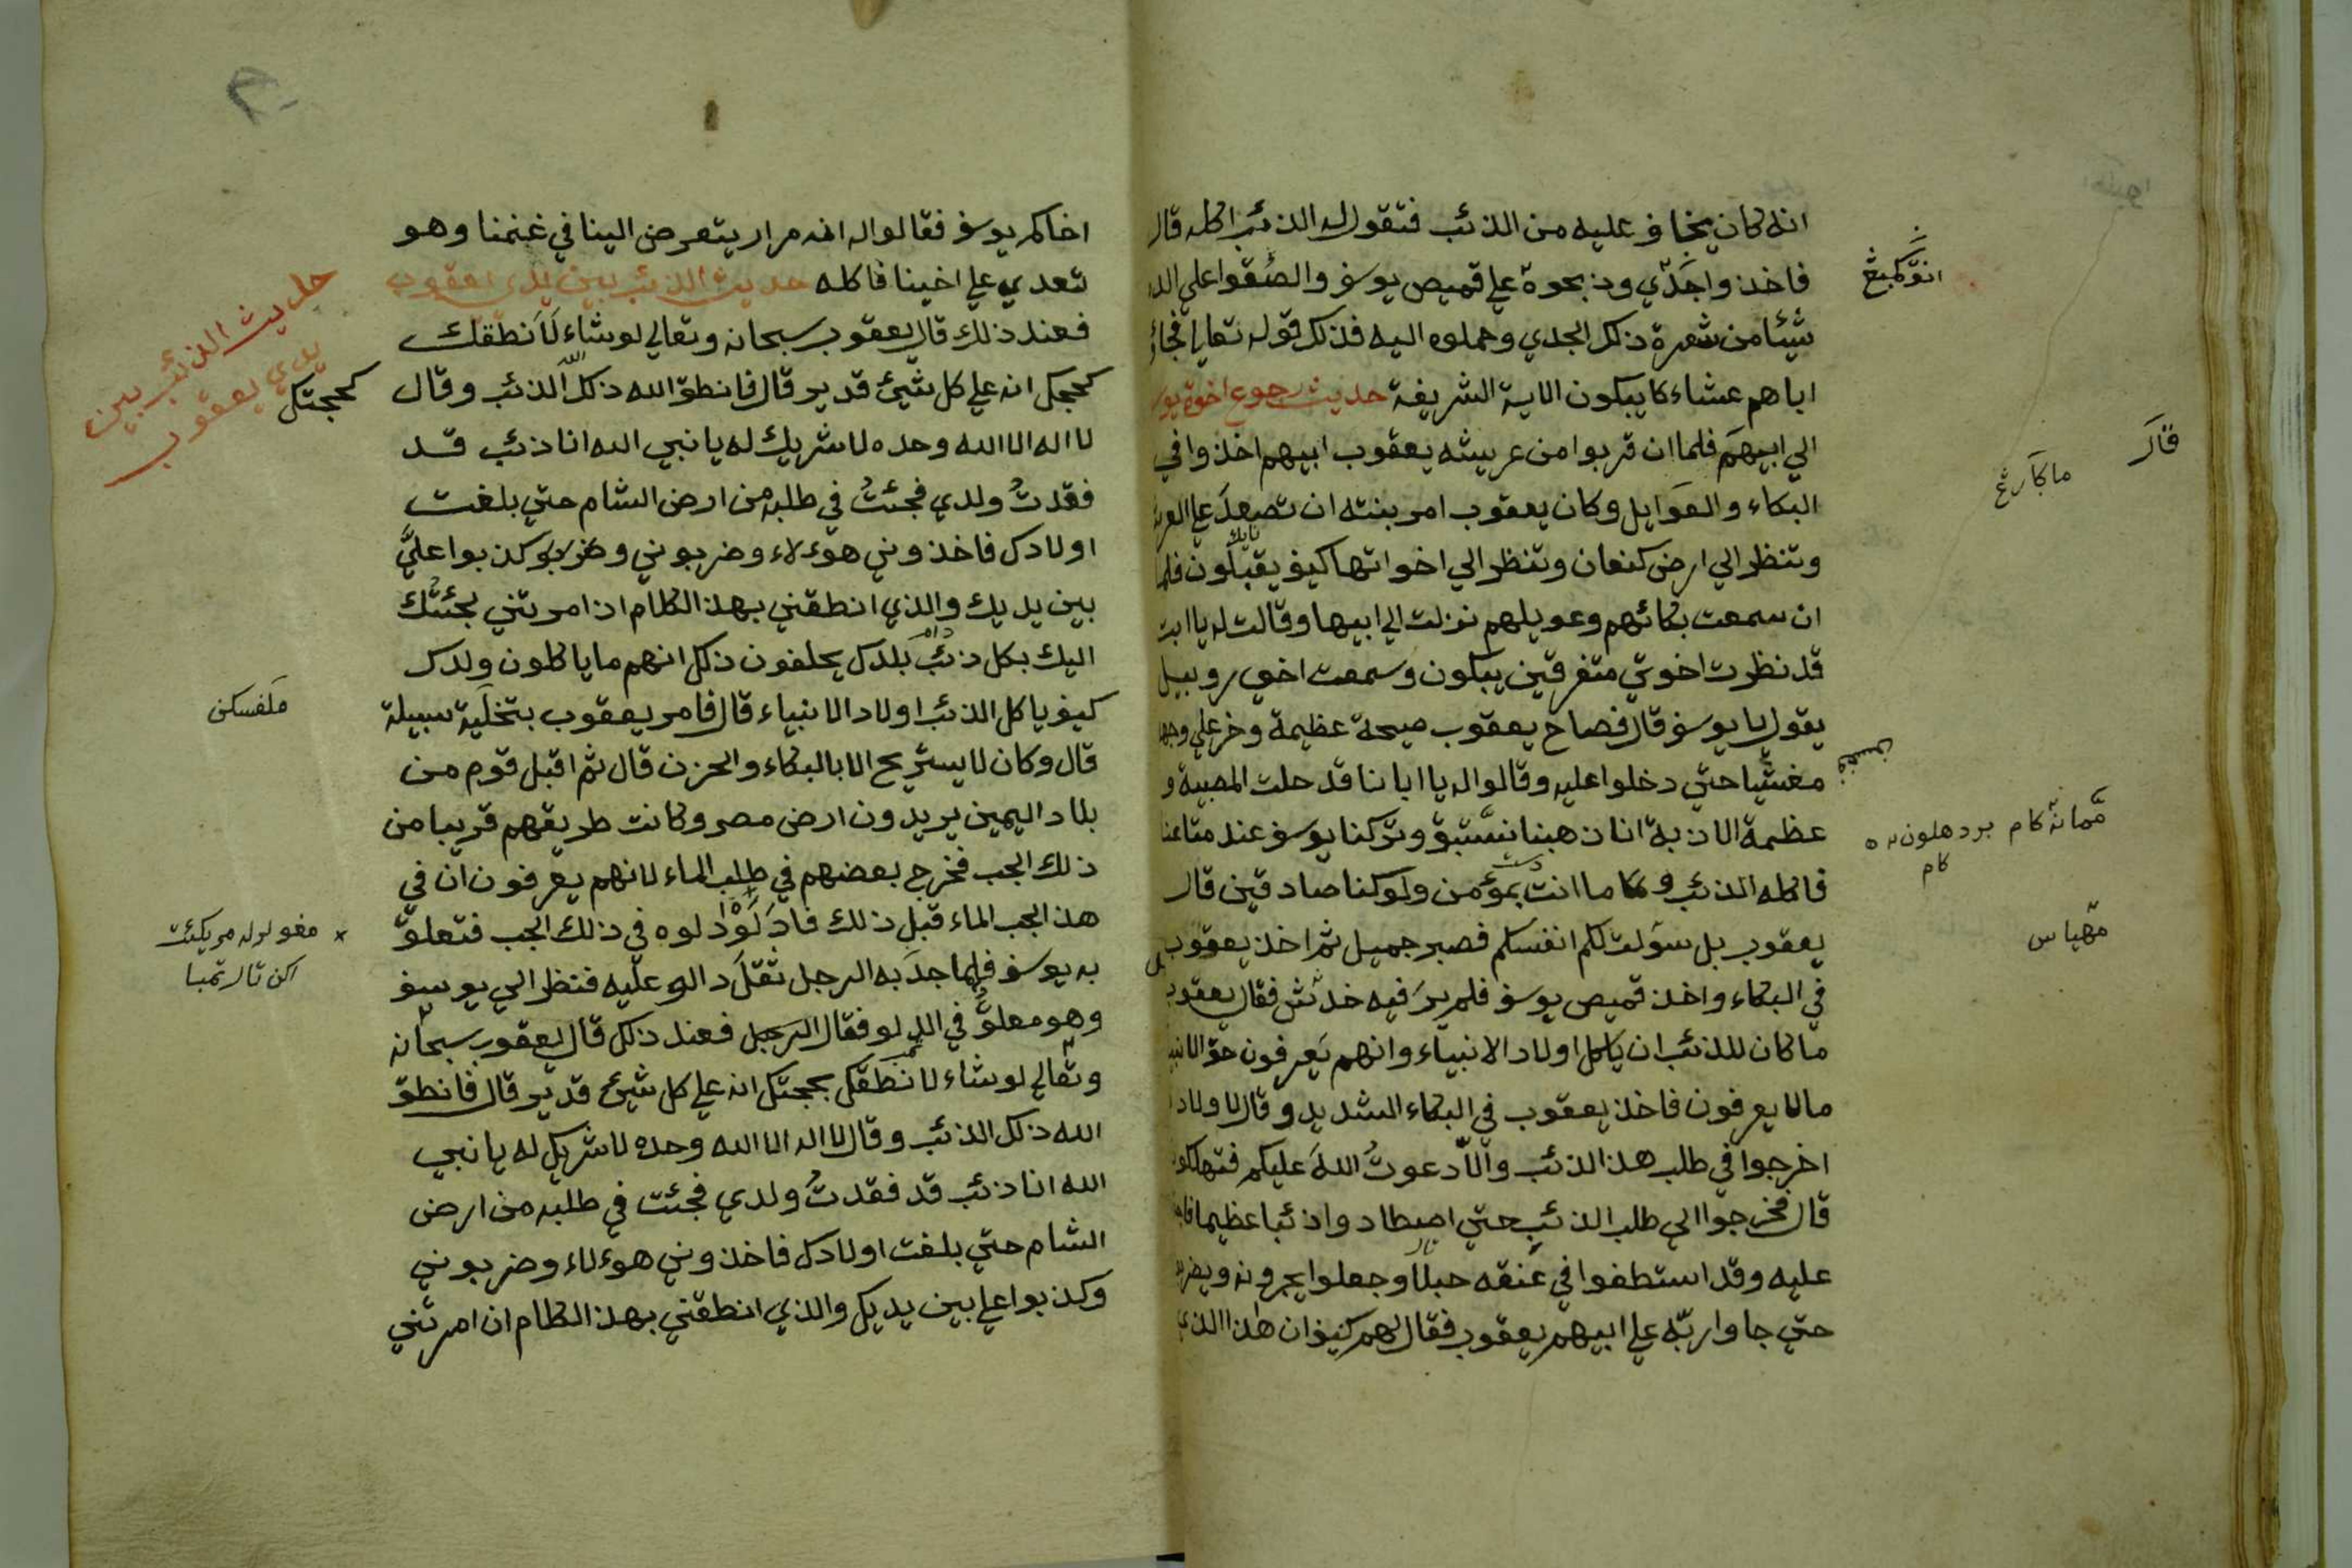 انه كان يخاف عليه من الذئب فتقول له الذئب اكله قال
فاخذوا جدي وذبحوه علي قميص يوسف والصقوا علي الدم
شيئا من شعرة ذلك الجدي وحملوه اليه فذلك قوله تعالي فجاؤ
اباهم عشاء كا يبكون الاية الشريفة حديث رجوع اخوة
الي ابيهم فلما ان قربوا من عريشه يعقوب ابيهم اخذوا في
البكاء والعوايل وكان يعقوب امر بنته ان تصعد علي
وتنظر الي ارض كنعان وتنظر الي اخواتها كيف يقبلون فلما
ان سمعت بكائهم وعويلهم نزلت الي ابيها وقالت له يا ابت
قد نظرت اخوتي متفرقين يبكون وسمعت اخي روبيل
يقول يا يوسف قال فصاح يعقوب صيحة عظيمة وخر علي وجهه
مغشيا حتي دخلوا عليه وقالوا له يا ابانا قد حلت المصيبة و
عظيمة الاذبة انا ذهبنا نستبق وتركنا يوسف عند متاعنا
فاكله الذئب وما انت بمؤمن ولو كنا صادقين قال
يعقوب بل سولت لكم انفسكم فصبر جميل ثم اخذ يعقوب
في البكاء واخذ قميص يوسف فلم ير فيه خدش فقال يعقوب
ما كان للذئب ان ياكل اولاد الانبياء وانهم يعرفون حق
مالا يعرفون فاخذ يعقوب في البكاء الشديد وقال لاولاده
اخرجوا في طلب هذ الذئب والا دعوت الله عليكم فتهلكون
قال فخرجوا الي طلب الذئب حتي اصطادوا ذئبا عظيما
عليه وقد استطفوا في عنقه حبلا وجعلوا يجرونه
حتي جاوا ربه علي ابيهم يعقوب فقال لهم كيف ان هذا الذي
قال
ماكارغ
مهياس
اخاكم يوسف فقالوا له انه مرار يتعرض الينا في غنمنا وهو
تعدي علي اخينا فاكله حديث الذئب بين يدي يعقوب
فعند ذلك قال يعقوب سبحانه وتعالي لو شاء لانطقك
كحجك انه علي كل شيئ قدير قال فانطق الله ذلك الذئب وقال
لا اله الا الله وحده لا شريك له يا نبي الله انا ذئب قد
فقدت ولدي فجئت في طلبه من ارض الشام حتي بلغت
اولادك فاخذوني هؤلاء وضربوني وكذبوا علي
بين يديك والذي انطقني بهذ الكلام اذ امرتني لجئتك
اليك بكل ذئب بلدك يحلفون ذلك انهم ما ياكلون ولدك
كيف ياكل الذئب اولاد الانبياء قال فامر يعقوب بتخلية سبيلة
قال وكان لا يستريح الا بالبكاء والحزن قال ثم اقبل قوم من
بلاد اليمين يريدون ارض مصر وكانت طريقهم قريبا من
ذلك الجب فخرج بعضهم في طلب الماء لانهم يعرفون ان في
هذ الجب الماء قبل ذلك فاد لو دلوه في ذلك الجب فتعلق
به يوسف فلما جد به الرجل ثقل دالو عليه فنظر الي يوسف
وهو معلق في الدلو فقال الرجل فعند ذلك قال يعقوب سبحانه
وتعالي لو شاء لانطقك بحجتك انه علي كل شيئ قدير قال فانطق
الله ذلك الذئب وقال لا اله الا الله وحده لا شريك له يا نبي
الله انا ذئب قد فقدت ولدي فجئت في طلبه من ارض
الشام حتي بلغت اولادك فاخذوني هوءلاء وضربوني
وكذبوا علي بين يديك والذي انطقني بهذ الكلام ان امرتني
حديث الذئب بين
يدي يعقوب
كحجتك
ملفسكن